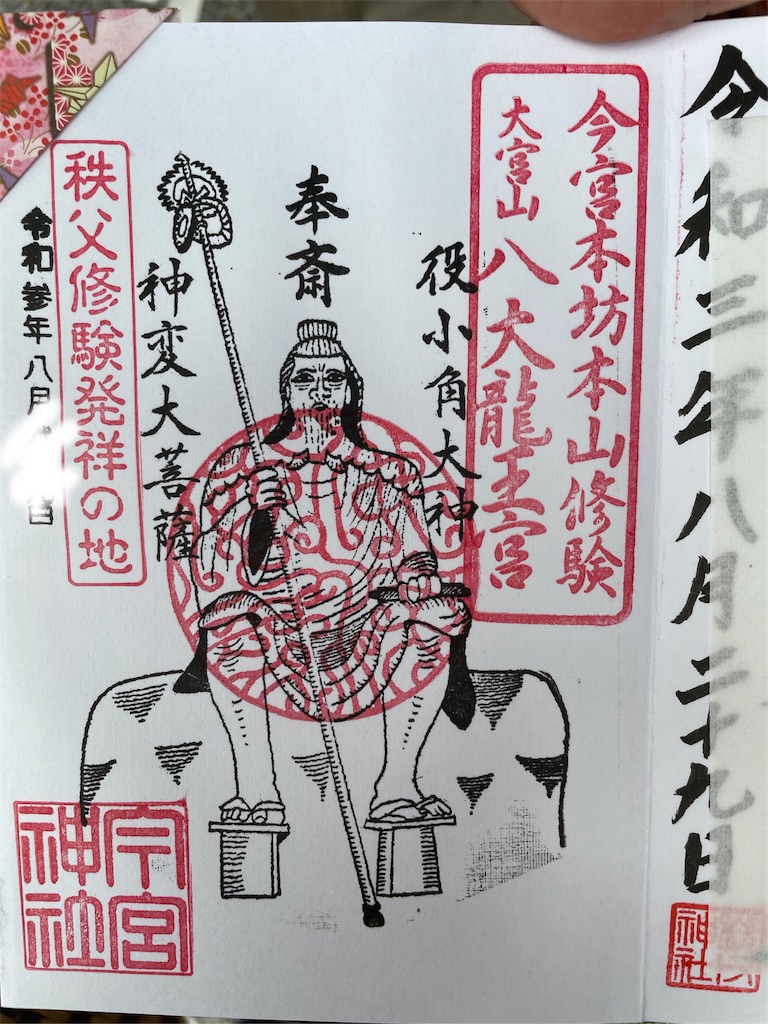 令和三年八月二十九日
神社
今宮本坊本山修験
大宮山 八大龍王宮
役小角大神
奉斎
神変大菩薩
秩父修験発祥の地
令和参年八月 日
今宮
神社